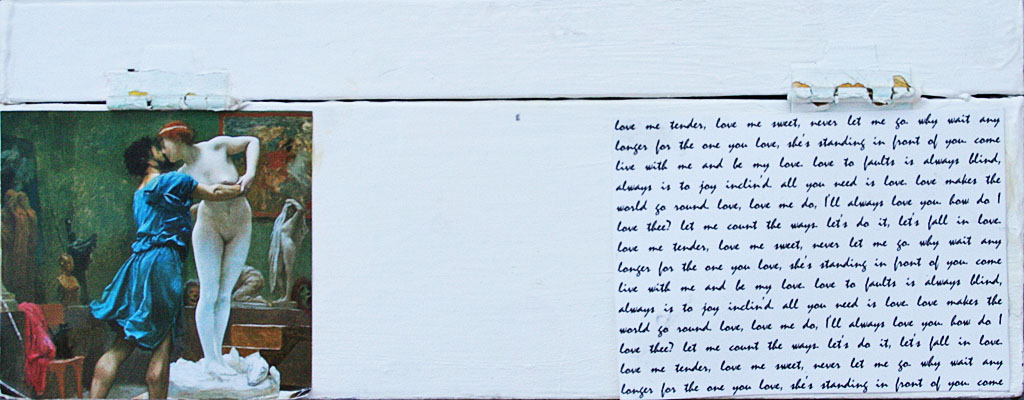 love me tender, love me sweet, never let me go. why wait any
longer for the one you love, she's standing in front of you. come
live with me and be my love. love to faults is always blind,
always is to joy inclin'd. all you need is love. love makes the
world go round. love, love me do, I'll always love you. how do I
love thee? let me count the ways. let's do it, let's fall in love.
love me tender, love me sweet, never let me go. why wait any
longer for the one you love, she's standing in front of you. come
live with me and be my love. love to faults is always blind,
always is to joy inclin'd. all you need is love. love makes the
world go round. love, love me do, I'll always love you. how do I
love thee? let me count the ways. let's do it, let's fall in love.
love me tender, love me sweet, never let me go. why wait any
longer for the one you love, she's standing in front of you. come